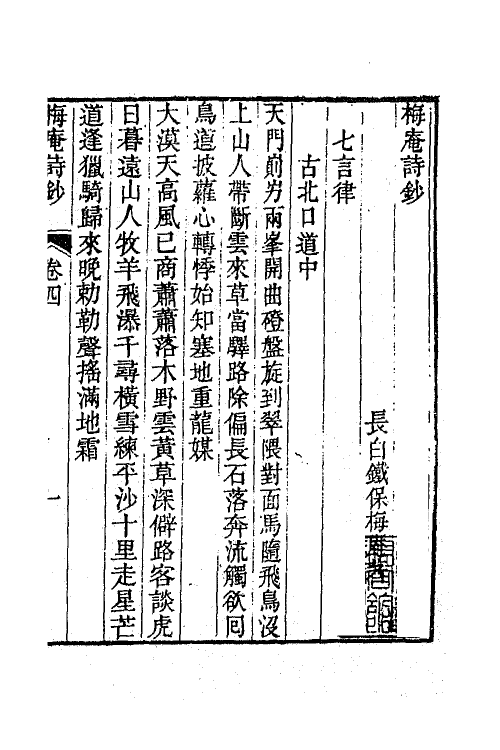 梅庵詩鈔
長白鐵保梅庵著
七言律
古北口道中
天門崱屴兩峯開曲磴盤旋到翠隈對面馬隨飛鳥沒
上山人帶斷雲來草當驛路除偏長石落奔流觸欲回
鳥道披蘿心轉悸始知塞地重龍媒
大漠天高風已商蕭蕭落木野雲黃草深僻路客談虎
日暮遠山人牧羊飛瀑千尋橫雪練平沙十里走星芒
道逢獵騎歸來晚勅勒聲搖滿地霜
梅庵詩鈔 卷四 一